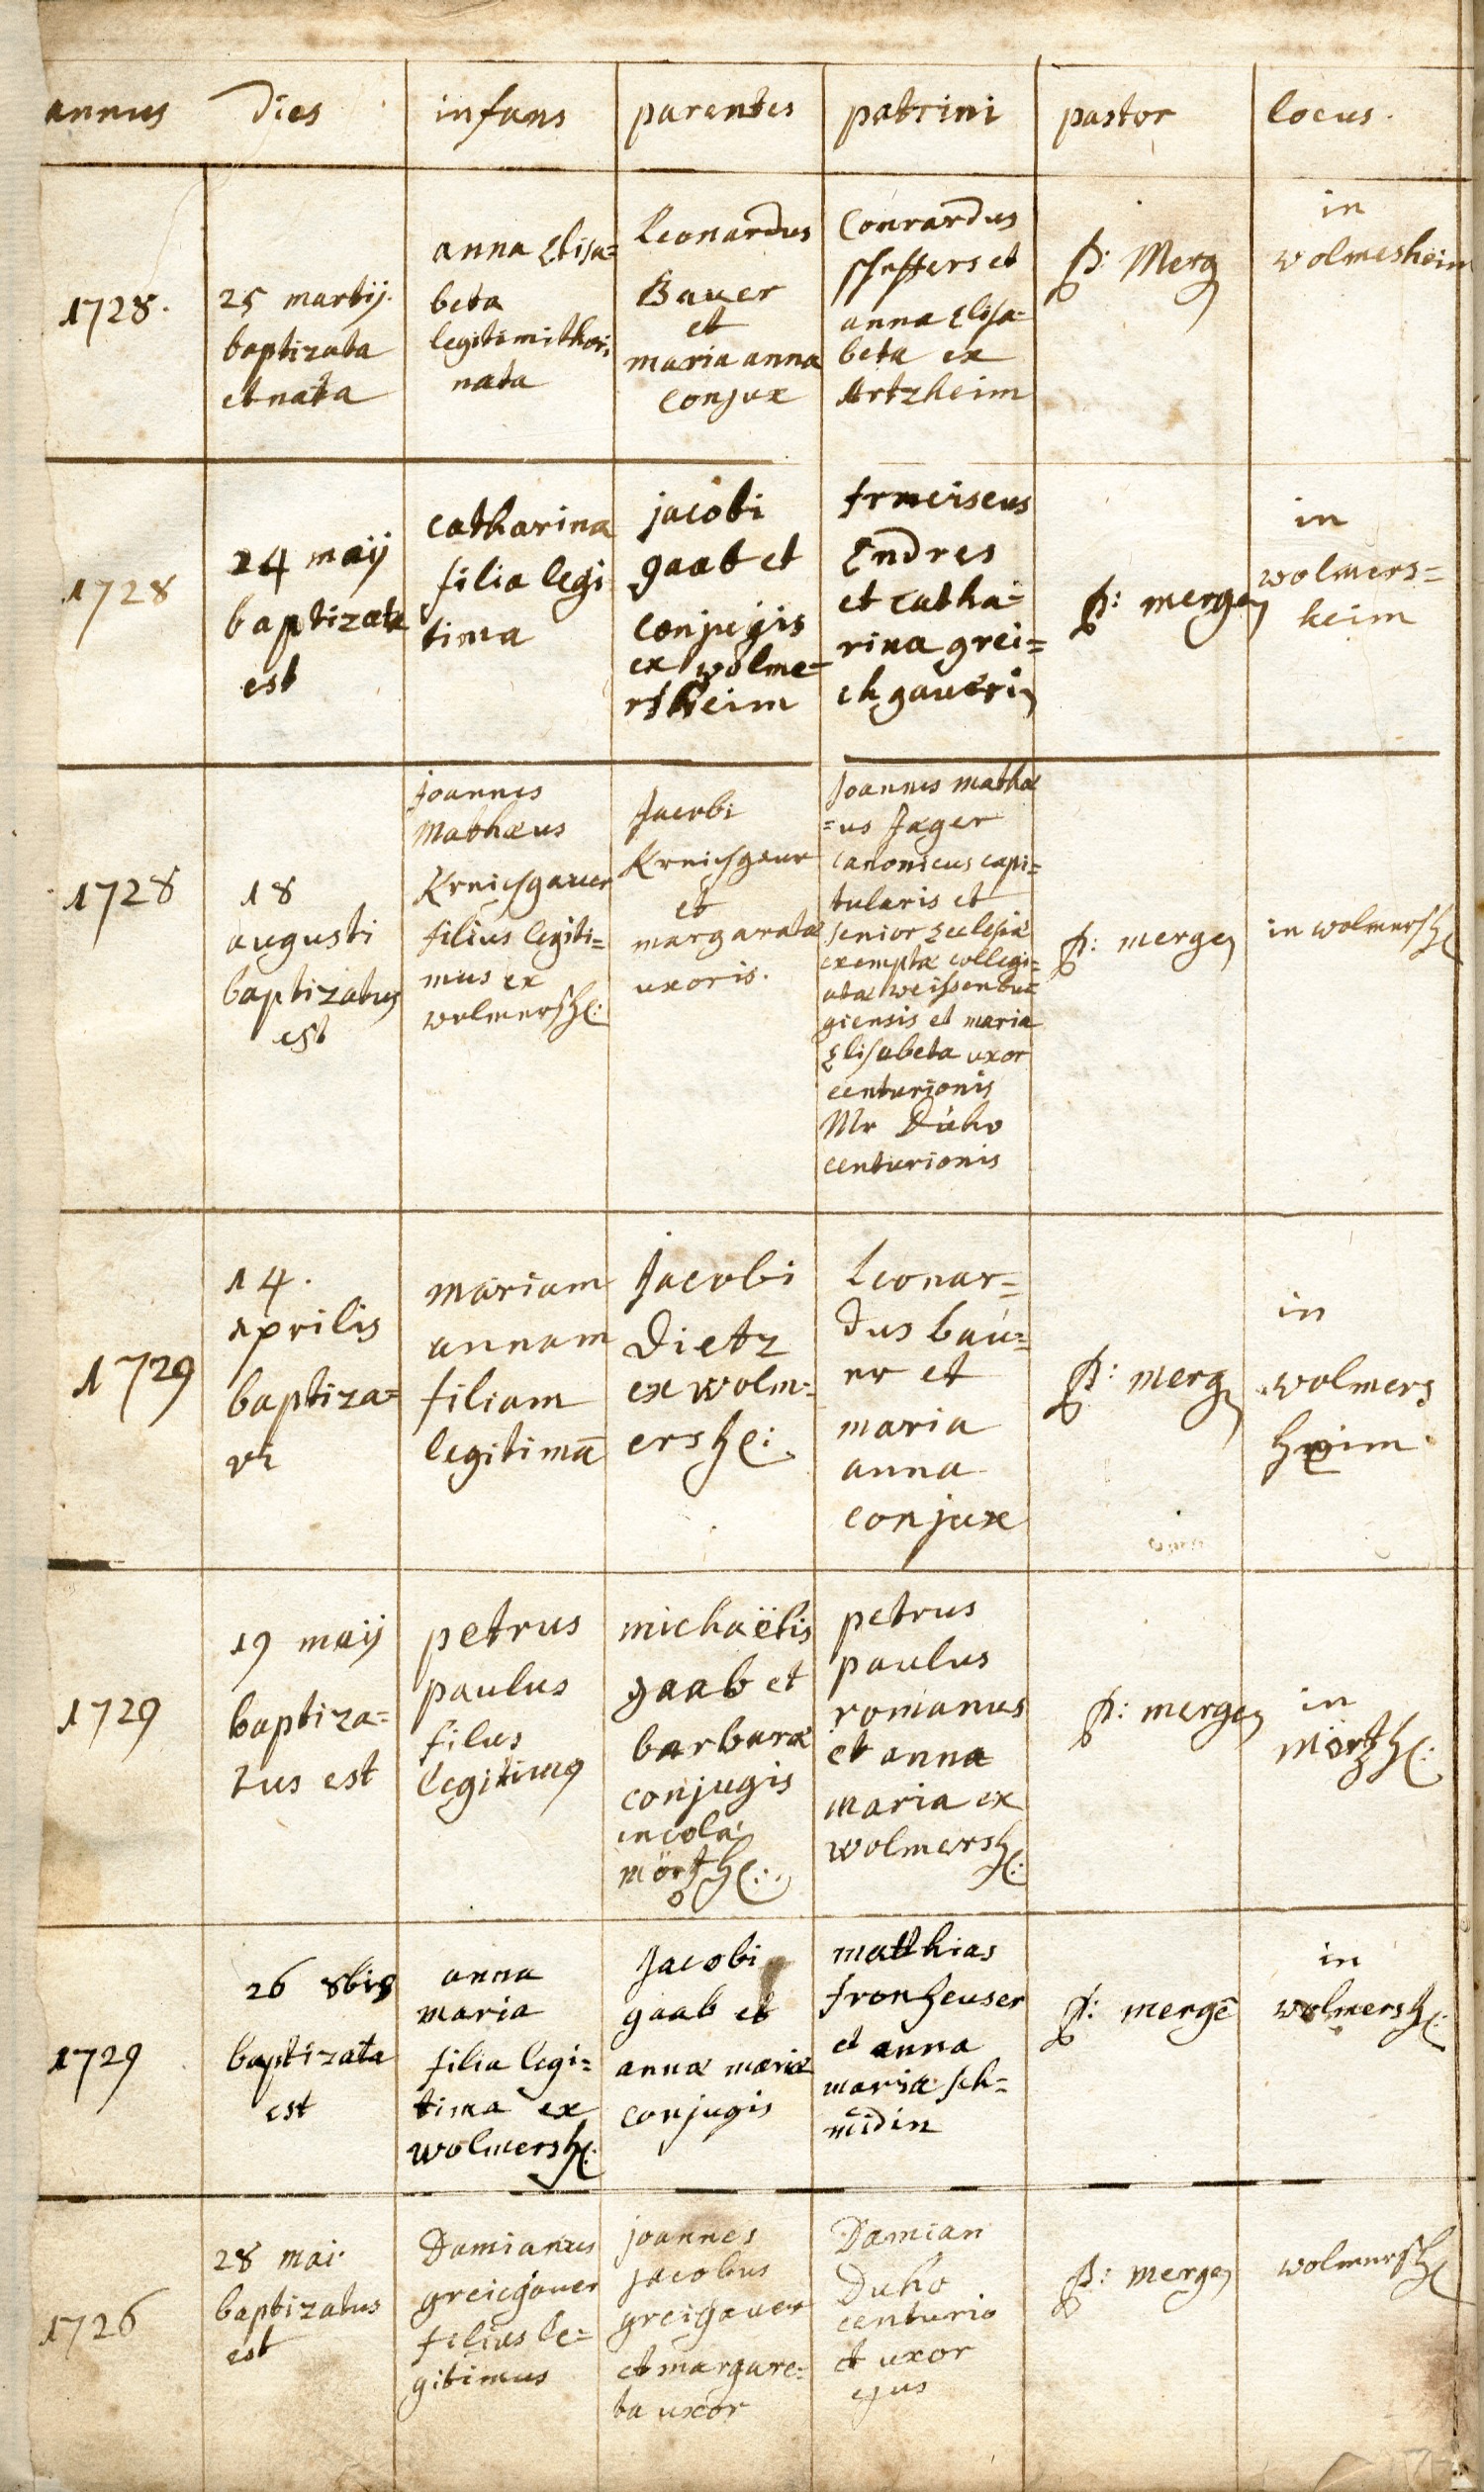 annus dies infans parentes patrini pastor locus.
1728.
25 martij.
baptizata
et nata
anna Elisa=
beta
legitimi thori
nata
Leonardus
Bauer
et
maria anna
conjux
Conrardus
scheffers et
anna Elisa=
beta ex
Artzheim
P: Merg
in
wolmesheim
1728
24 maij
baptizata
est
catharina
filia legi
tima
jacobi
gaab et
conjugis
ex wolme=
rsheim
franciscus
Endres
et catha=
rina grei=
chgauerin
P: mergen
in
wolmers=
heim
1728
18
augusti
baptizatus
est
joannes
Mathæus
Kreichgauer
filius legiti=
mus ex
wolmersh:
Jacobi
Kreichgaur
et
margaratæ
uxoris.
Joannes mathæ
=us Jæger
canonicus capi=
tularis et
senior Eclesiæ
exemptæ collegi=
atæ weissenbur=
giensis et maria
Elisabeta uxor
centurionis
Mr Duho
centurionis
P: mergen
in wolmersh
1729
14.
aprilis
baptiza=
vi
mariam
annam
filiam
legitimā
Jacobi
Dietz
ex wolm=
ersh:
Leonar=
dus bau=
er et
maria
anna
conjux
P: merg
in
wolmers
heim
1729
19 maij
baptiza=
tus est
petrus
paulus
filus
legitimus
michaëlis
gaab et
barbaræ
conjugis
incolæ
mörtzh:
petrus
paulus
romanus
et anna
maria ex
wolmersh:
P: mergen
in
mörtzh:
1729
26 8bis
baptizata
est
anna
maria
filia legi=
tima ex
wolmersh:
Jacobi
gaab et
annæ mariæ
conjugis
matthias
fronheuser
et anna
maria sch=
midin
P: mergē
in
wolmersh:
1726
28 mai
baptizatus
est
Damianus
greicgauer
filius le=
gitimus
joannes
jacobus
greigauer
et margare=
ta uxor
Damian
Duho
centurio
et uxor
ejus
P: mergen
wolmersh